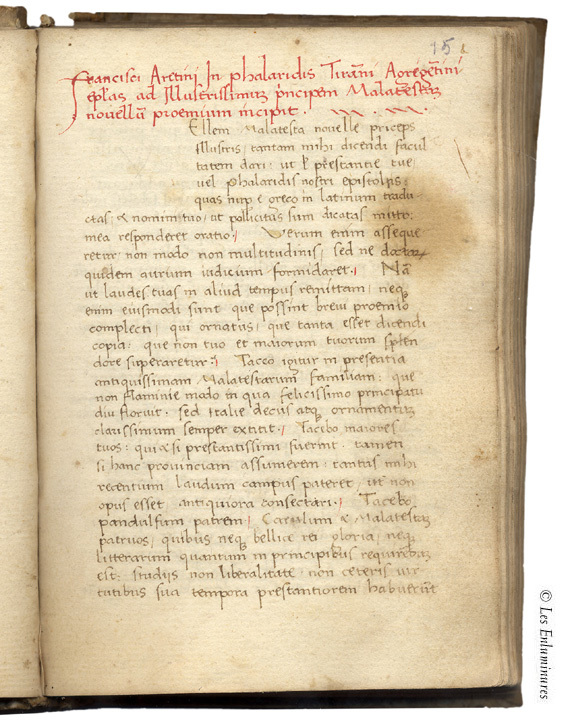 15
Francisci Aretini In phalaridis Tiranni Agregentini
epl'as ad Illustrissimum principem Malatestam
novellū proemium incipit.
Ellem Malatesta novelle prīceps
illustris, tantam mihi dicendi facul
tatem dari: ut l' prestantie tue,
vel phalaridis nostri epistolis:
quas nup e greco in latinum tradu-
ctas, & nomini tuo, ut pollicitus sum dicatas mitto:
mea responderet oratio. Verum enim asseque
retur non modo non multitudinis, sed ne doctor
quidem aurum iudicium formidaret. Nā
ut laudes tuas in aliud tempus remittam, neq
enim eiusmodi sunt que possint brevi proemio
complecti, qui ornatus, que tanta esset dicendi
copia: que non tuo et maiorum tuorum splen
dore superaretur: Taceo igitur in presentia
antiquissimam Malatestarum familiam: que
non flaminie modo in qua felicissimo principatu
diu floruit, sed italie decus atq ornamentum
clarissimum semper extitit. Tacebo maiores
tuos: qui & si prestantissimi fuerint, tamen
si hanc provinciam assumerem, tantus mihi
recentium laudum campus pateret, ut non
opus esset antiquiora consectari. Tacebo
pandulfum patrem, Carulum & Malatestam
patruos, quibus neq bellice rei gloria, neq
litterarum quantum in principibus requirendum
est: studijs non liberalitate, non ceteris vir
tutibus sua tempora prestantiorem habuerūt
© Les Enluminures